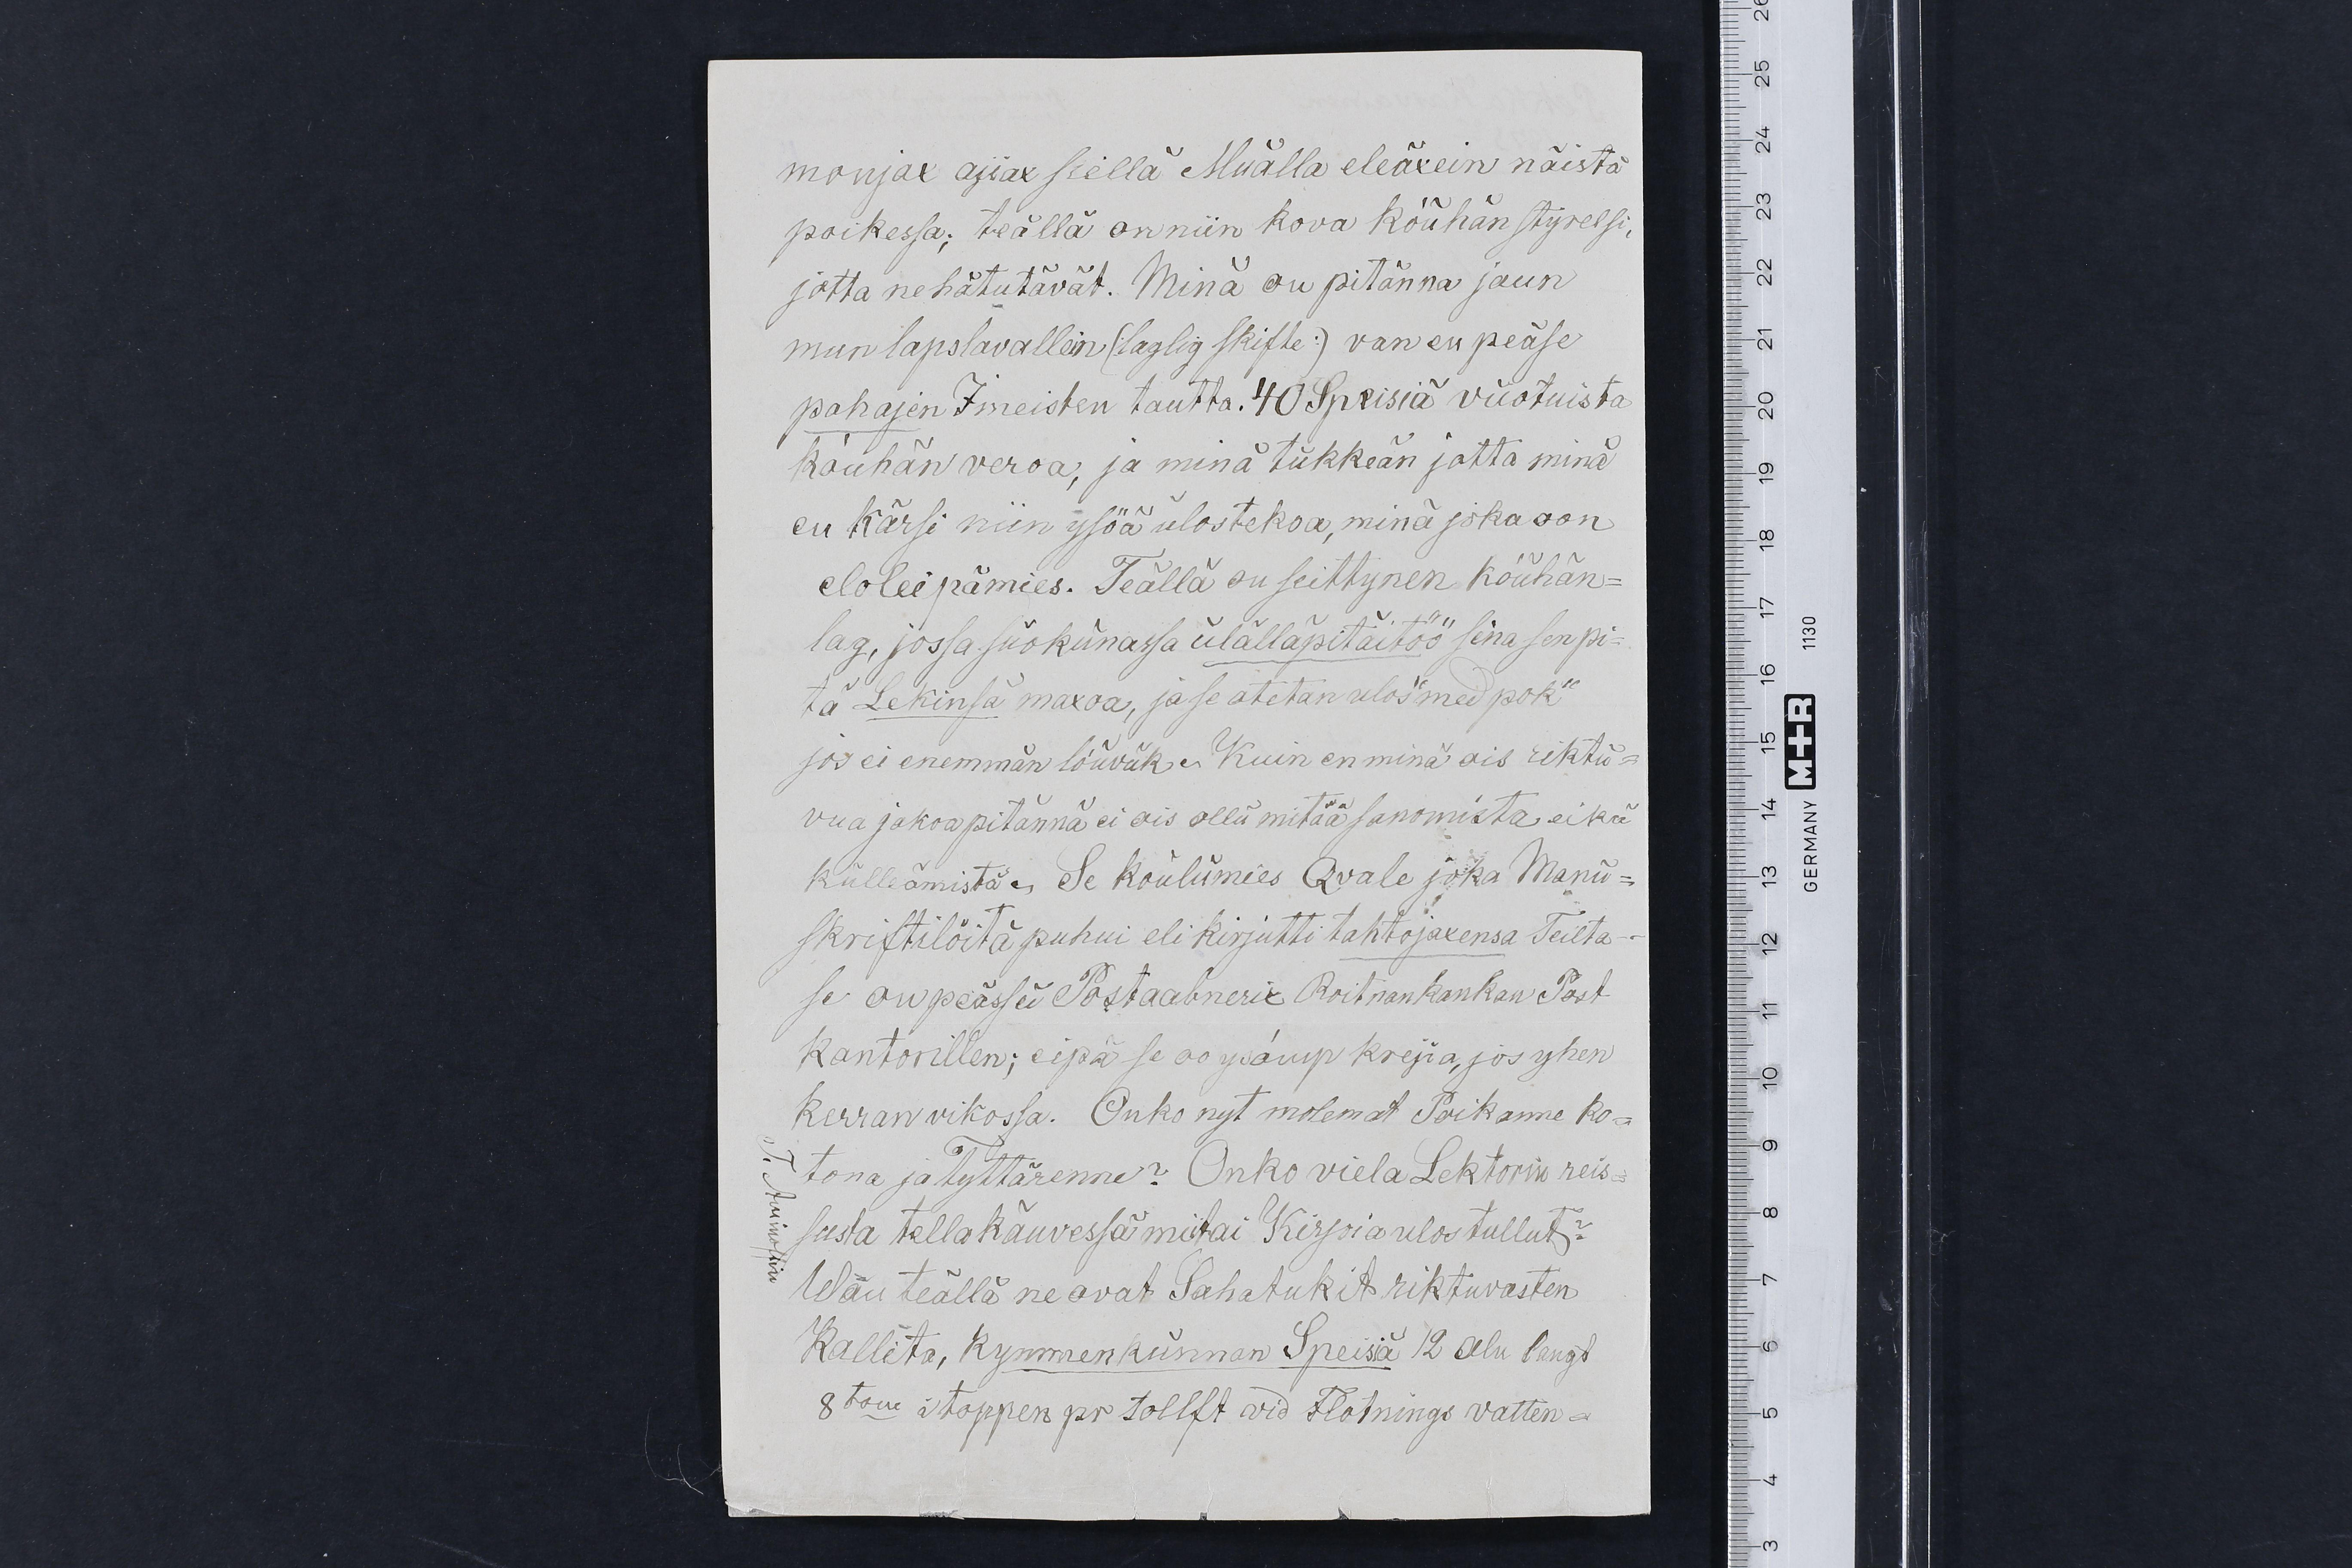 monjax ajiax siellä Muälla eleäxein näistä
poikessa; teällä on niin kova köühän styrelsi,
jotta ne hätutävät. Minä ou pitänna jaun
mun lapslavallein (:laglig skifte:) van en peäse
pahajen Imeisten tautta. 40 Speisiä vüotuista
köuhän veroa, ja minä tükkeän jotta minä
en kärsi niin ysöä ulostekoa, minä joka oon
eloleipämies. Teällä ou seittynen köühän=
lag, jossa süokünassa ülälläpitäitöö sina sen pi=
tä Lekinsä maxoa, ja se otetan ulos "med pok"
jos ei enemmän löuvük. Kuin en minä ois riktü=
vua jakoa pitännä ei ois ollü mitää sanomista eikä
külleämistä. Se koulümies Qvale joka Manü=
skriftilöitä puhui eli kirjutti tahtojaxensa Teilta -
se ou peässü Postaabnerix Roitnankankan Post
kantorillen; eipä se oo ysöump krejia, jos yhen
kerran vikossa. Onko nyt molemat Poikanne ko=
tona ja Tyttärenne? Onko viela Lektorin reis=
susta tella käuvessä mitai Kirjoia ulos tullut?
Wäu teällä ne ovat Sahatukit riktuvasten
Kallita, kymmenkünnan Speisiä 12 aln langt
8 tom i toppen pr tollft vid Flotnings vatten=